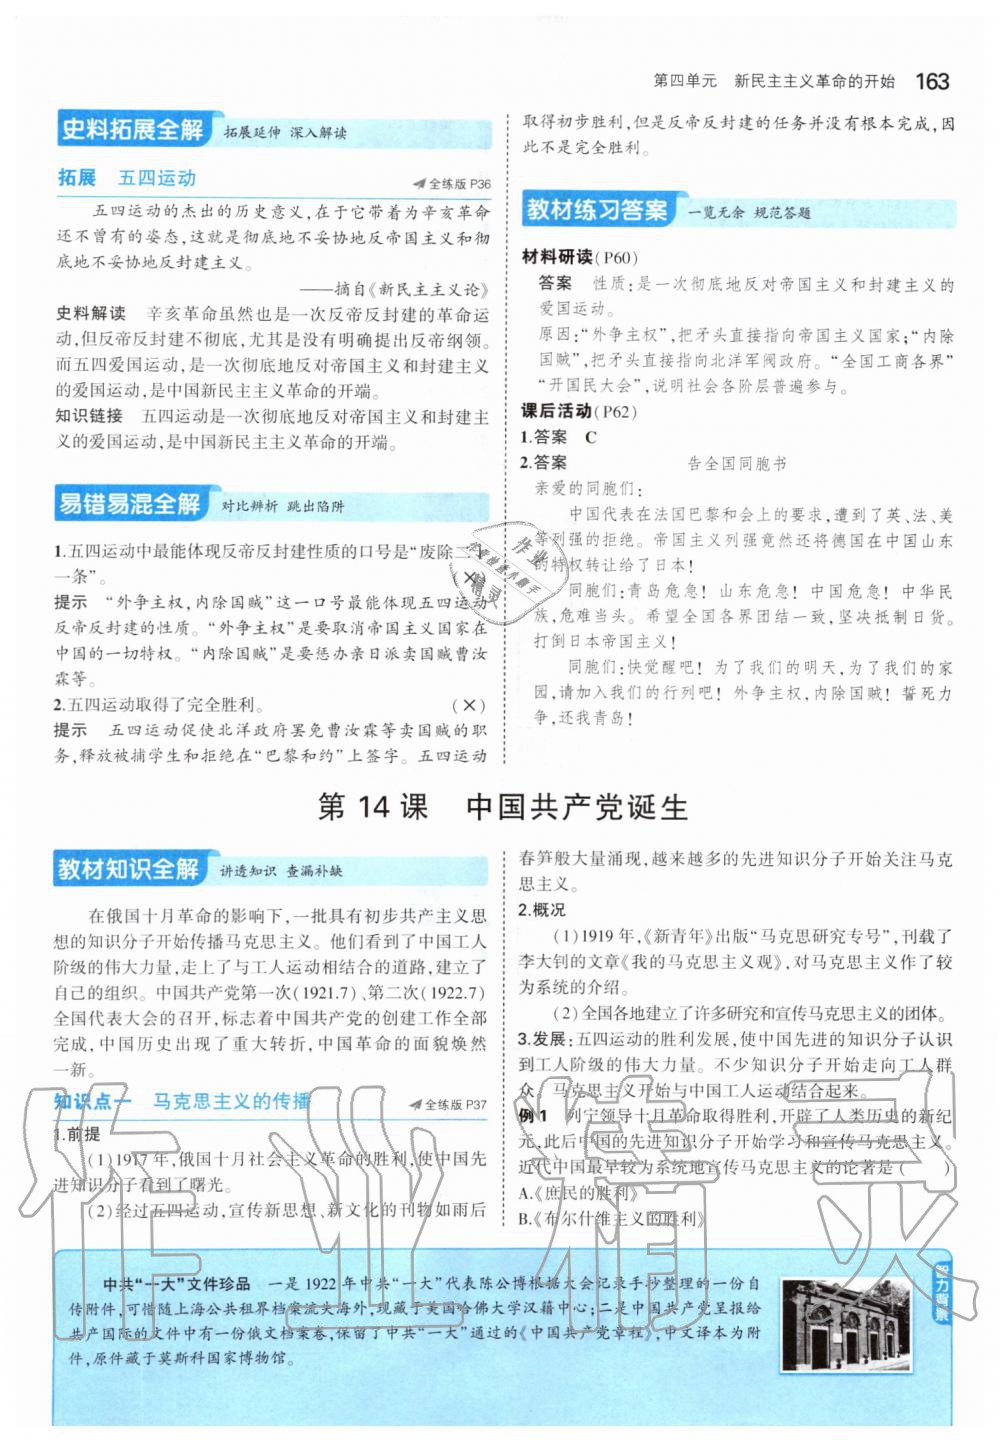 第四单元　新民主主义革命的开始　163
史料拓展全解　拓展延伸 深入解读
拓展　五四运动　全练版 P36
五四运动的杰出的历史意义，在于它带着为辛亥革命
还不曾有的姿态，这就是彻底地不妥协地反帝国主义和彻
底地不妥协地反封建主义。
——摘自《新民主主义论》
史料解读　辛亥革命虽然也是一次反帝反封建的革命运
动，但反帝反封建不彻底，尤其是没有明确提出反帝纲领。
而五四爱国运动，是一次彻底地反对帝国主义和封建主义
的爱国运动，是中国新民主主义革命的开端。
知识链接　五四运动是一次彻底地反对帝国主义和封建主
义的爱国运动，是中国新民主主义革命的开端。
易错易混全解　对比辨析 跳出陷阱
1.五四运动中最能体现反帝反封建性质的口号是“废除二十
一条”。（×）
提示　“外争主权，内除国贼”这一口号最能体现五四运动
反帝反封建的性质。“外争主权”是要取消帝国主义国家在
中国的一切特权。“内除国贼”是要惩办亲日派卖国贼曹汝
霖等。
2.五四运动取得了完全胜利。（×）
提示　五四运动促使北洋政府罢免曹汝霖等卖国贼的职
务，释放被捕学生和拒绝在“巴黎和约”上签字。五四运动
取得初步胜利，但是反帝反封建的任务并没有根本完成，因
此不是完全胜利。
教材练习答案　一览无余 规范答题
材料研读(P60)
答案　性质：是一次彻底地反对帝国主义和封建主义的
爱国运动。
原因：“外争主权”，把矛头直接指向帝国主义国家；“内除
国贼”，把矛头直接指向北洋军阀政府。“全国工商各界”
“开国民大会”，说明社会各阶层普遍参与。
课后活动(P62)
1.答案　C
2.答案　告全国同胞书
亲爱的同胞们：
中国代表在法国巴黎和会上的要求，遭到了英、法、美
等列强的拒绝。帝国主义列强竟然还将德国在中国山东
的特权转让给了日本！
同胞们：青岛危急！山东危急！中国危急！中华民
族，危难当头。希望全国各界团结一致，坚决抵制日货。
打倒日本帝国主义！
同胞们：快觉醒吧！为了我们的明天，为了我们的家
园，请加入我们的行列吧！外争主权，内除国贼！誓死力
争，还我青岛！
第 14 课　中国共产党诞生
教材知识全解　讲透知识 查漏补缺
在俄国十月革命的影响下，一批具有初步共产主义思
想的知识分子开始传播马克思主义。他们看到了中国工人
阶级的伟大力量，走上了与工人运动相结合的道路，建立了
自己的组织。中国共产党第一次(1921.7)、第二次(1922.7)
全国代表大会的召开，标志着中国共产党的创建工作全部
完成，中国历史出现了重大转折，中国革命的面貌焕然
一新。
知识点一　马克思主义的传播　全练版 P37
1.前提
(1)1917年，俄国十月社会主义革命的胜利，使中国先
进知识分子看到了曙光。
(2)经过五四运动，宣传新思想、新文化的刊物如雨后
春笋般大量涌现，越来越多的先进知识分子开始关注马克
思主义。
2.概况
(1)1919年，《新青年》出版“马克思研究专号”，刊载了
李大钊的文章《我的马克思主义观》，对马克思主义作了较
为系统的介绍。
(2)全国各地建立了许多研究和宣传马克思主义的团体。
3.发展：五四运动的胜利发展，使中国先进的知识分子认识
到工人阶级的伟大力量。不少知识分子开始走向工人群
众。马克思主义开始与中国工人运动结合起来。
例 1　列宁领导十月革命取得胜利，开辟了人类历史的新纪
元，此后中国的先进知识分子开始学习和宣传马克思主义。
近代中国最早较为系统地宣传马克思主义的论著是(　　)
A.《庶民的胜利》
B.《布尔什维主义的胜利》
中共“一大”文件珍品　一是 1922 年中共“一大”代表陈公博根据大会记录手抄整理的一份自
传附件，可惜随上海公共租界档案流失海外，现藏于美国哈佛大学汉籍中心；二是中国共产党呈报给
共产国际的文件中有一份俄文档案卷，保留了中共“一大”通过的《中国共产党章程》，中文译本为附
件，原件藏于莫斯科国家博物馆。
智力背景
作业精灵